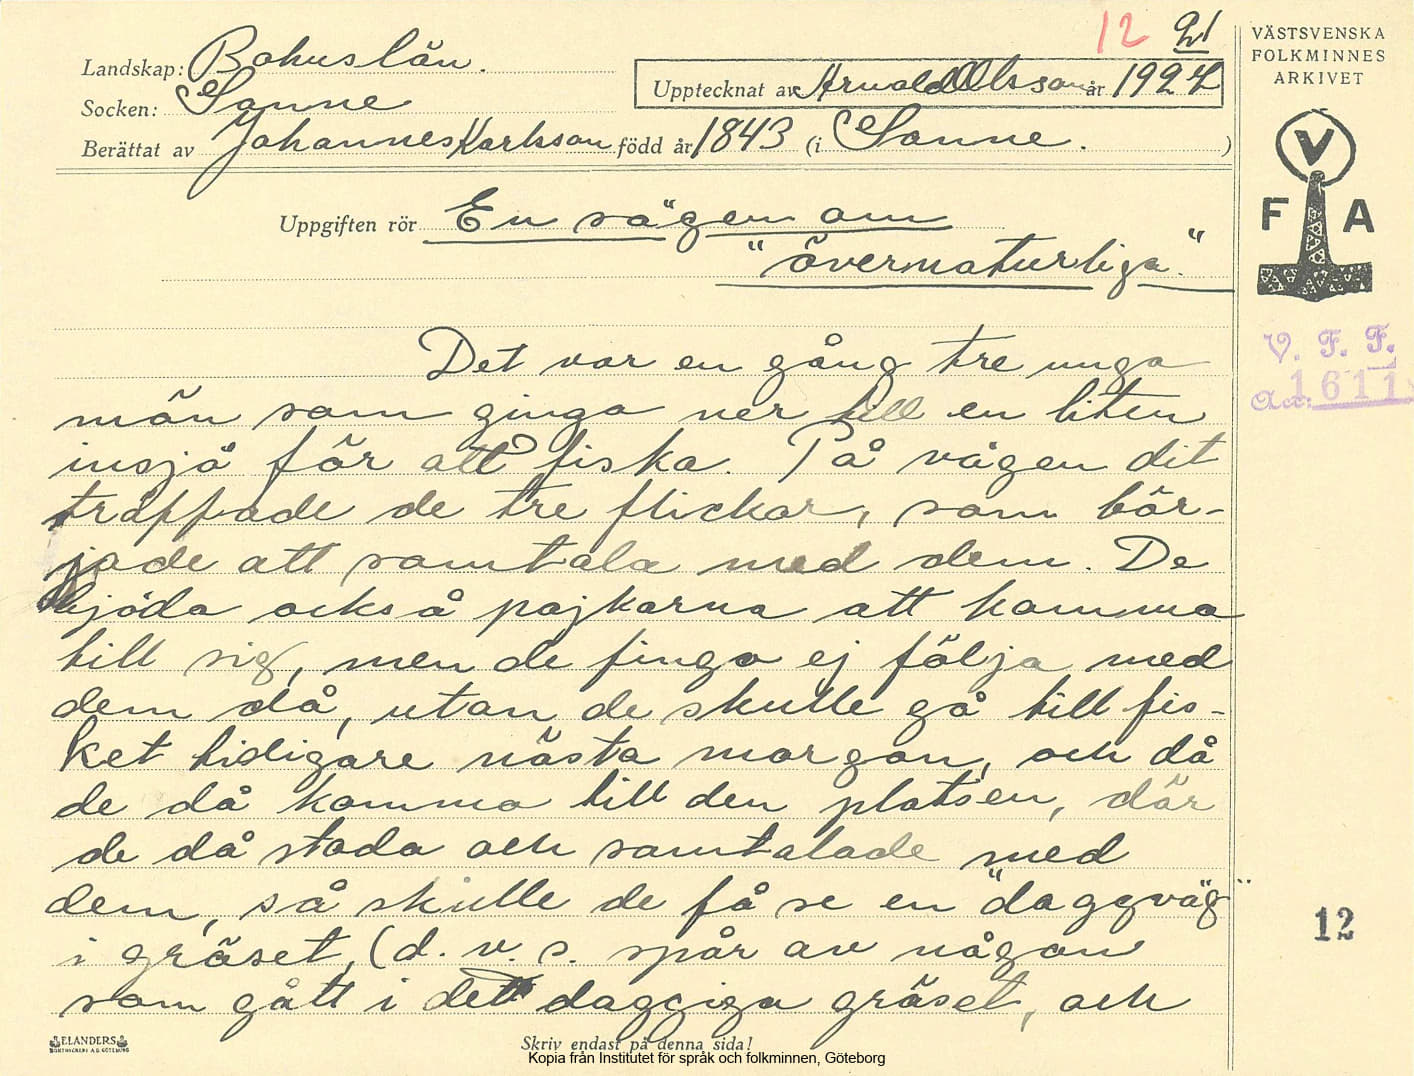 12 21
Landskap: Bohuslän.
Upptecknat av Arnold Olsson år 1924
Socken: Sanne
Berättat av Johannes Karlsson född år 1843 (i Sanne. )
VÄSTSVENSKA
FOLKMINNES
ARKIVET
V
F A
Uppgiften rör En sägen om
"övernaturliga."
V. F. F.
Acc. 1611
Det var en gång tre unga
män som gingo ner till en liten
insjö för att fiska. På vägen dit
träffade de tre flickor, som bör-
jade att samtala med dem. De
bjödo också pojkarna att komma
till sig, men de fingo ej följa med
dem då, utan de skulle gå till fis-
ket tidigare nästa morgon, och då
de då kommo till den platsen, där
de då stodo och samtalade med
dem, så skulle de få se en "daggväg"
i gräset, (d. v. s. spår av någon
som gått i det daggiga gräset, och
12
ELANDERS
BOKTRYCKERI A.B. GÖTEBORG
Skriv endast på denna sida!
Kopia från Institutet för språk och folkminnen, Göteborg